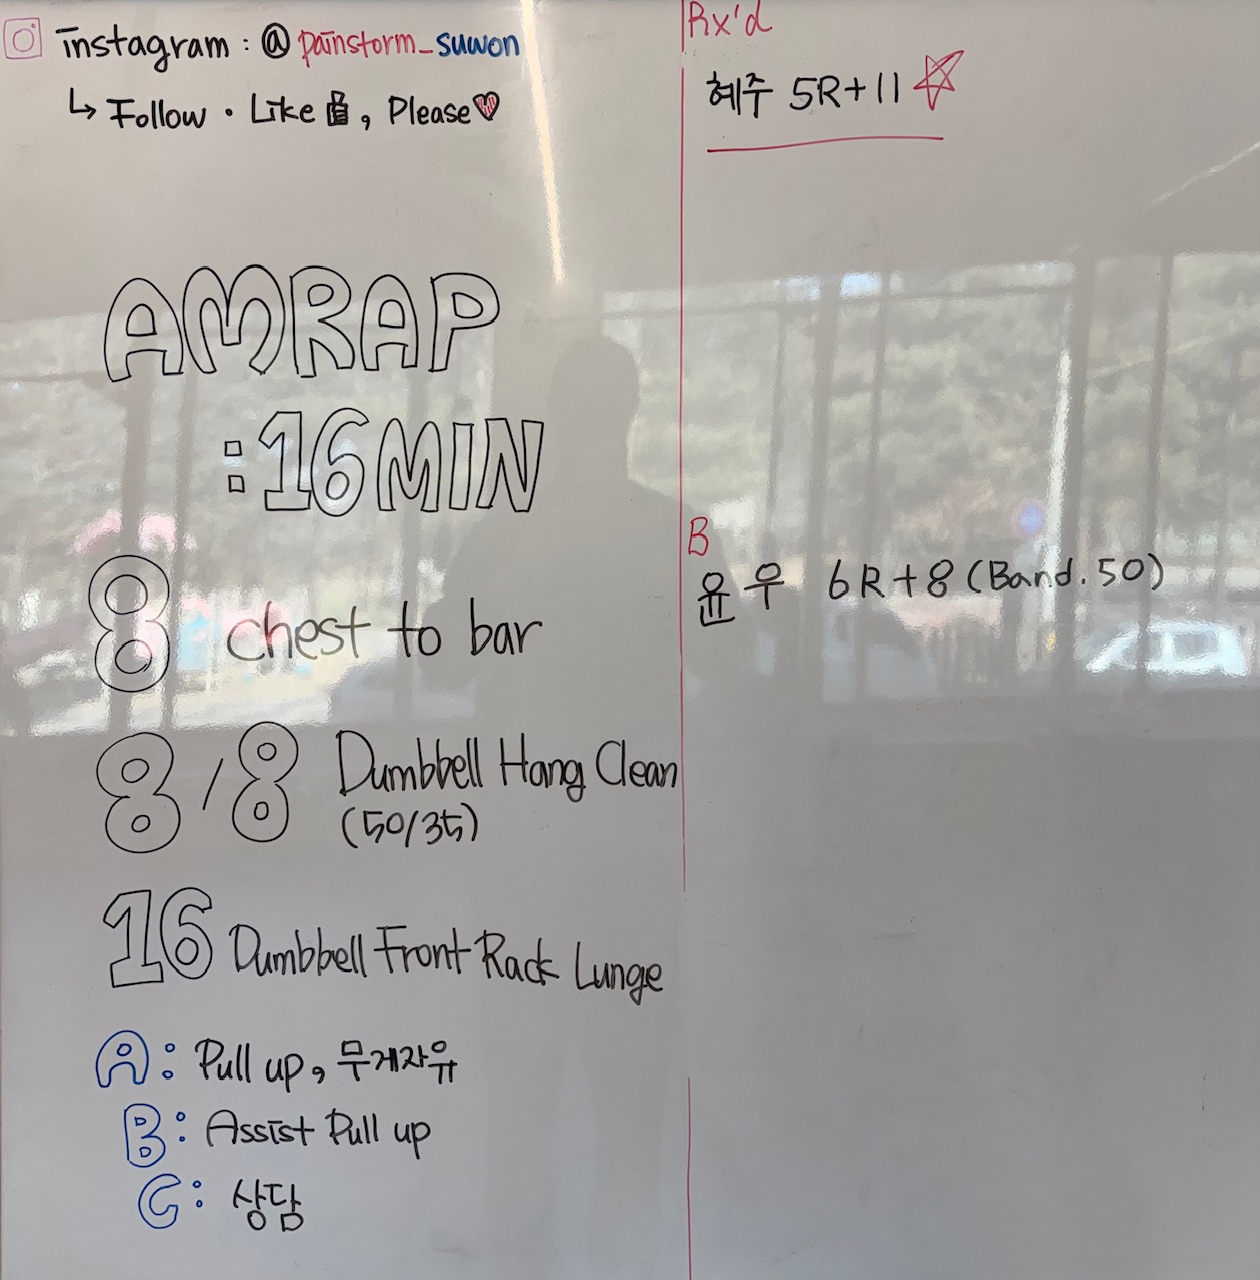 instagram : @ painstorm_suwon
↳ Follow · Like 👍, Please♥
AMRAP
:16MIN
8 chest to bar
8/8 Dumbbell Hang Clean
(50/35)
16 Dumbbell Front Rack Lunge
A: Pull up, 무게자유
B: Assist Pull up
C: 상담
Rx'd
혜주 5R+11 ☆
B
윤우 6R+8 (Band. 50)